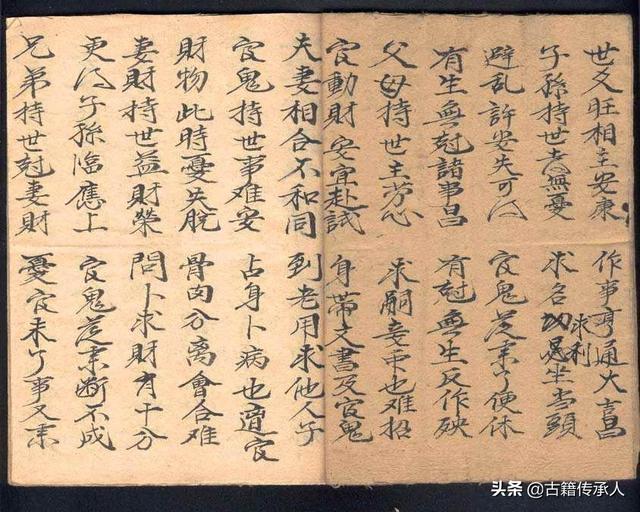 世爻旺相主安康 作事亨通大吉昌
子孫持世無憂 求名求利切忌坐當頭
避乱許安失可得 官鬼從来了便休
有生無尅諸事昌 有尅無生反作殃
父母持世主劳心 求嗣妾也难招
官動財安宜赴試 身帶文書及官鬼
夫妻相合不和同 到老用求他人子
官鬼持世事难安 占身卜病也遭官
財物此時憂失脫 骨肉分离會合难
妻財持世益財榮 問卜求財有十分
更得子孫臨應上 官鬼從来断不成
兄弟持世尅妻財 憂官未了事又来
头条 @古籍传承人